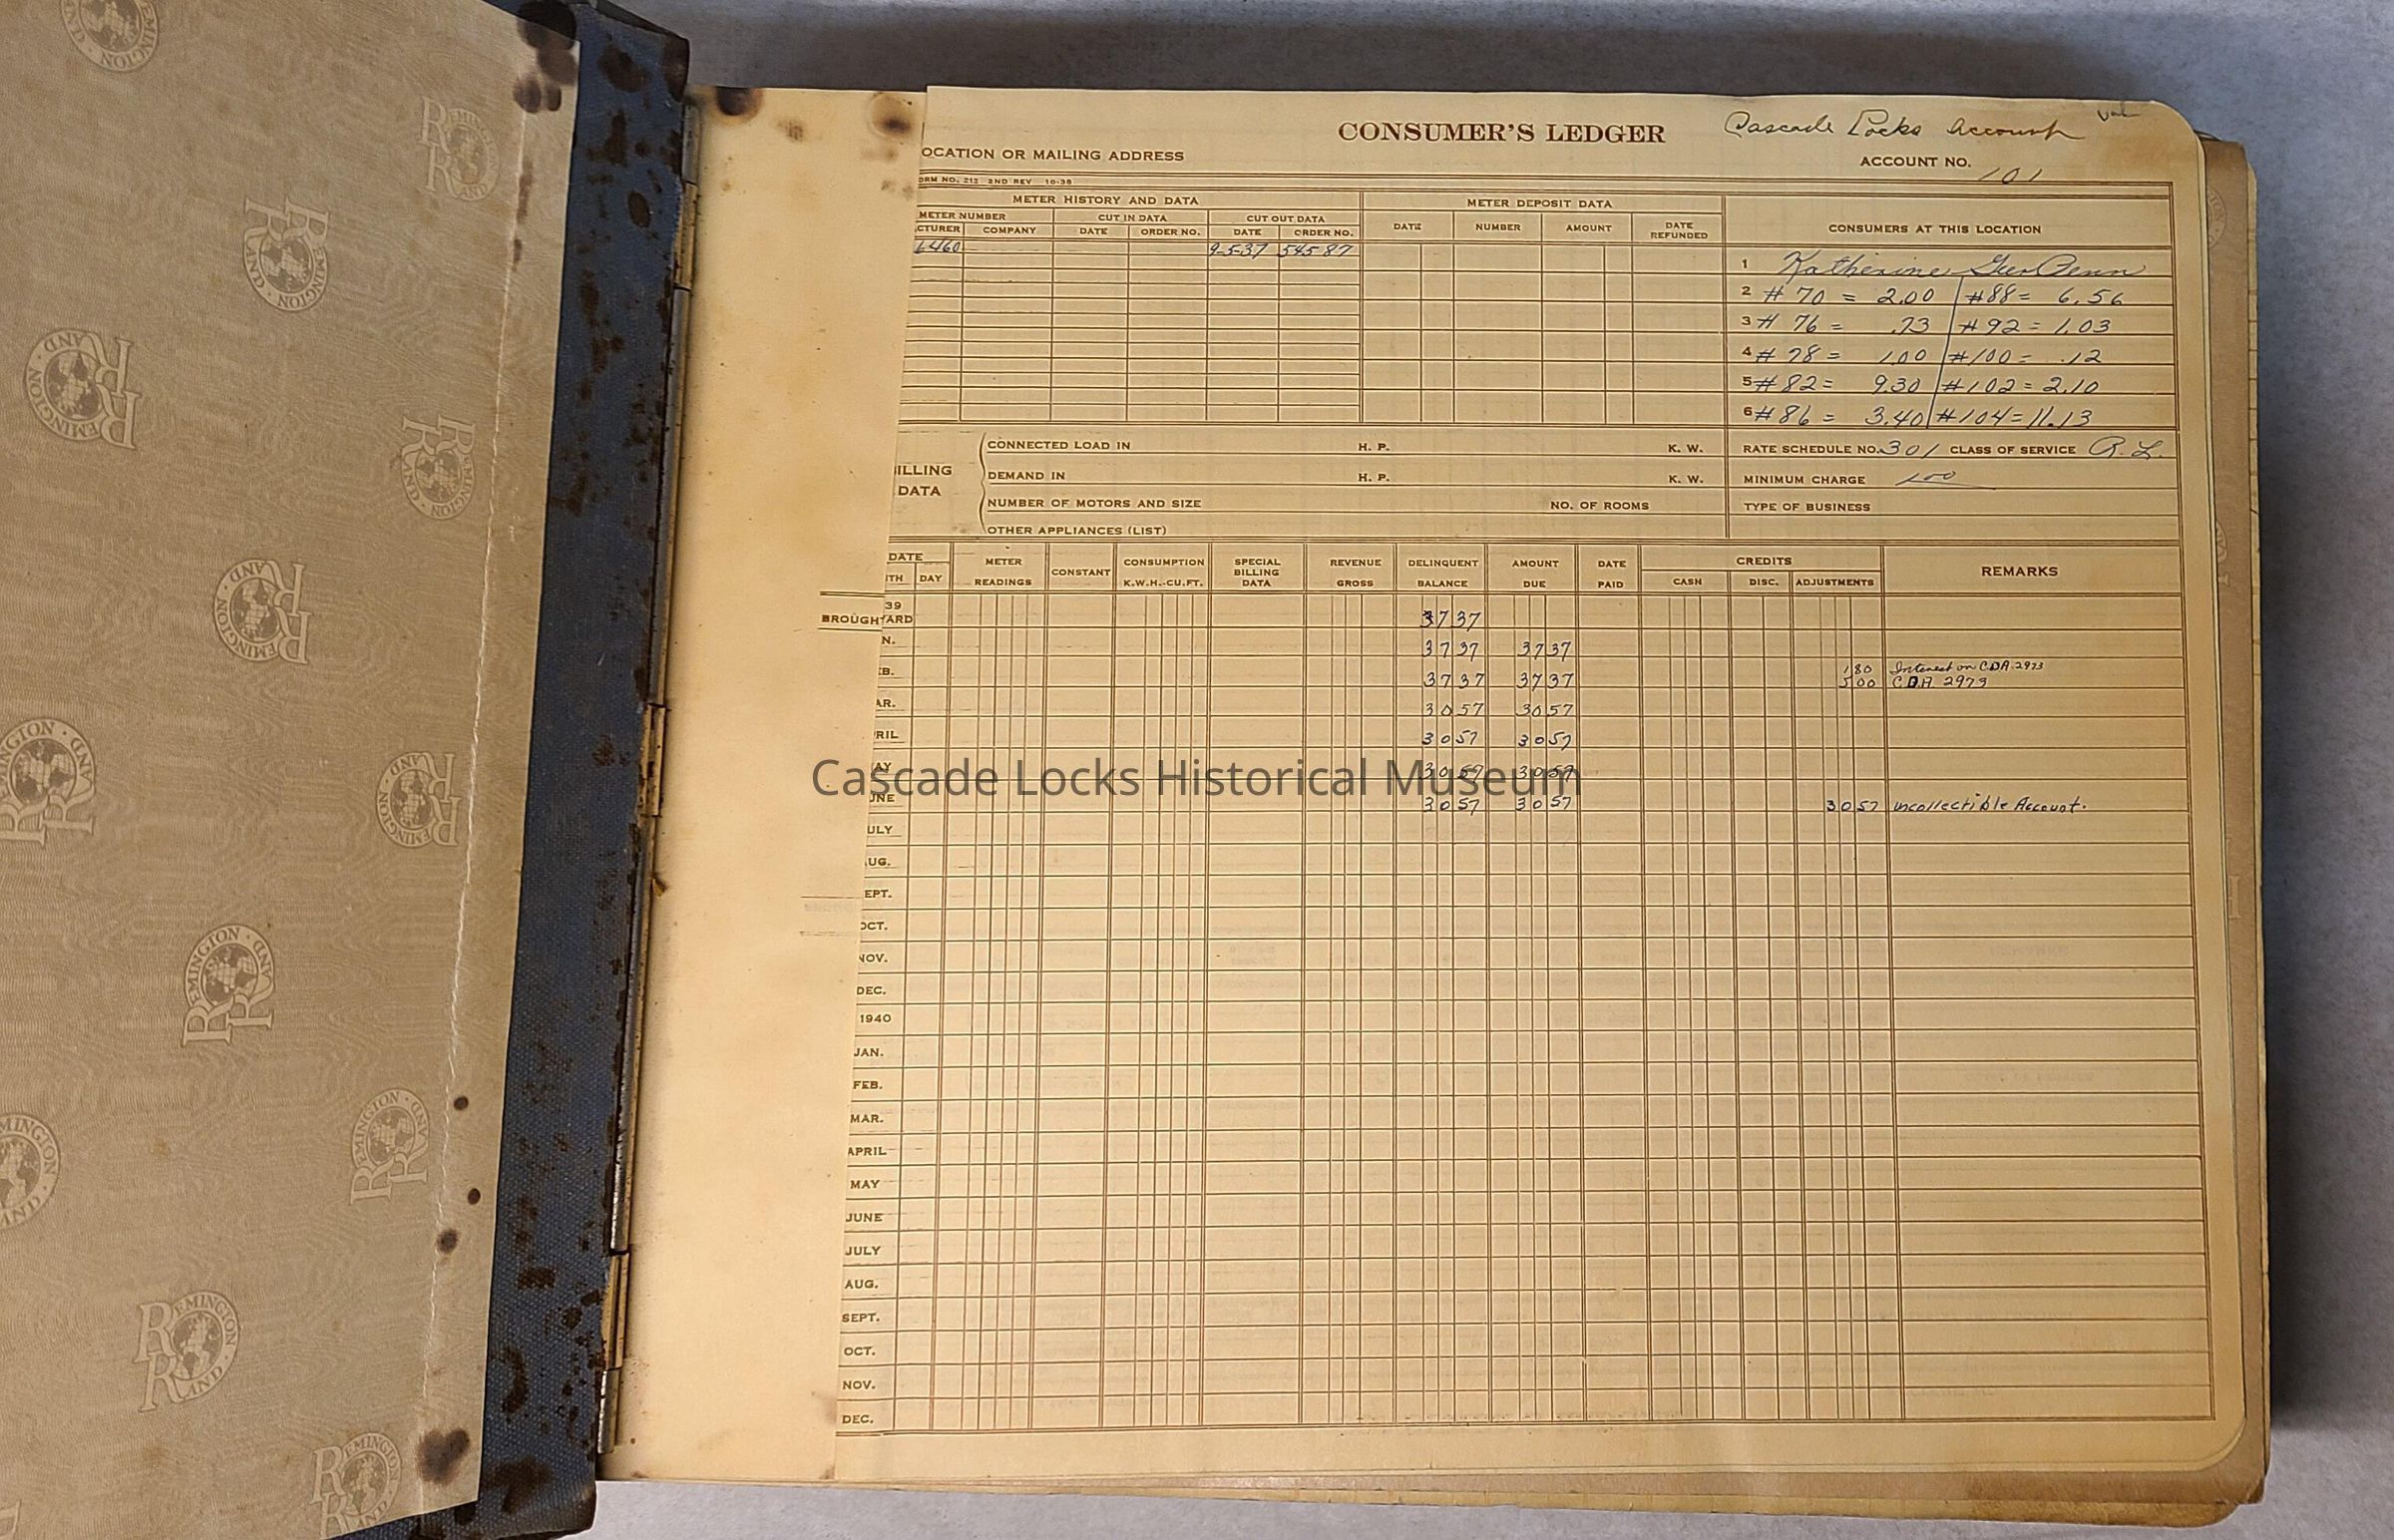 REMINGTON RAND
CONSUMER'S LEDGER
Cascade Locks Account
OCATION OR MAILING ADDRESS
ACCOUNT NO. 101
ORM NO. 212 2ND REV 10-38
METER HISTORY AND DATA
METER DEPOSIT DATA
CONSUMERS AT THIS LOCATION
METER NUMBER CUT IN DATA CUT OUT DATA
CTURER COMPANY DATE ORDER NO. DATE ORDER NO.
DATE NUMBER AMOUNT DATE REFUNDED
1460 9-5-37 54587
1 Katherine
2 # 70 = 2.00 #88 = 6.56
3 # 76 = .73 #92 = 1.03
4 # 78 = 1.00 #100 = .12
5 # 82 = 9.30 #102 = 2.10
6 # 86 = 3.40 #104 = 11.13
ILLING DATA
CONNECTED LOAD IN H. P. K. W.
DEMAND IN H. P. K. W.
NUMBER OF MOTORS AND SIZE NO. OF ROOMS
OTHER APPLIANCES (LIST)
RATE SCHEDULE NO. 301 CLASS OF SERVICE R.L.
MINIMUM CHARGE 100
TYPE OF BUSINESS
DATE METER READINGS CONSTANT CONSUMPTION K.W.H.-CU.FT. SPECIAL BILLING DATA REVENUE GROSS DELINQUENT BALANCE AMOUNT DUE DATE PAID CREDITS REMARKS
TH DAY CASH DISC. ADJUSTMENTS
39
BROUGH ARD 37 37
N. 37 37 37 37
EB. 37 37 37 37 1 80 Interest on CDA 2973
5 00 CDA 2973
AR. 30 57 30 57
RIL 30 57 30 57
AY 30 57 30 57
Cascade Locks Historical Museum
UNE 30 57 30 57 30 57 uncollectible Account.
ULY
UG.
EPT.
OCT.
NOV.
DEC.
1940
JAN.
FEB.
MAR.
APRIL
MAY
JUNE
JULY
AUG.
SEPT.
OCT.
NOV.
DEC.